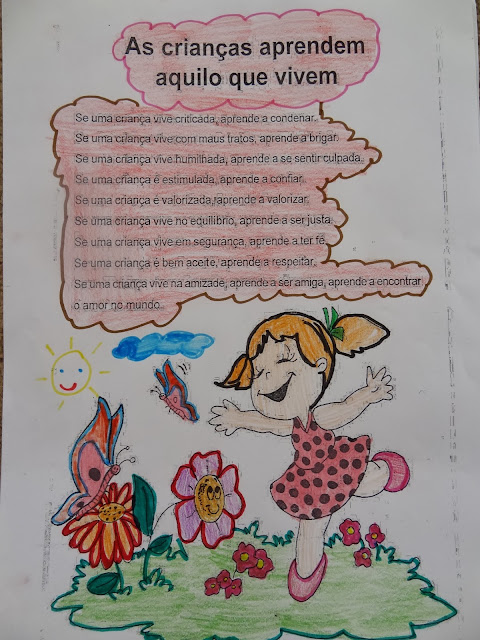 As crianças aprendem
aquilo que vivem
Se uma criança vive criticada, aprende a condenar.
Se uma criança vive com maus tratos, aprende a brigar.
Se uma criança vive humilhada, aprende a se sentir culpada.
Se uma criança é estimulada, aprende a confiar.
Se uma criança é valorizada, aprende a valorizar.
Se uma criança vive no equilíbrio, aprende a ser justa.
Se uma criança vive em segurança, aprende a ter fé.
Se uma criança é bem aceite, aprende a respeitar.
Se uma criança vive na amizade, aprende a ser amiga, aprende a encontrar
o amor no mundo.